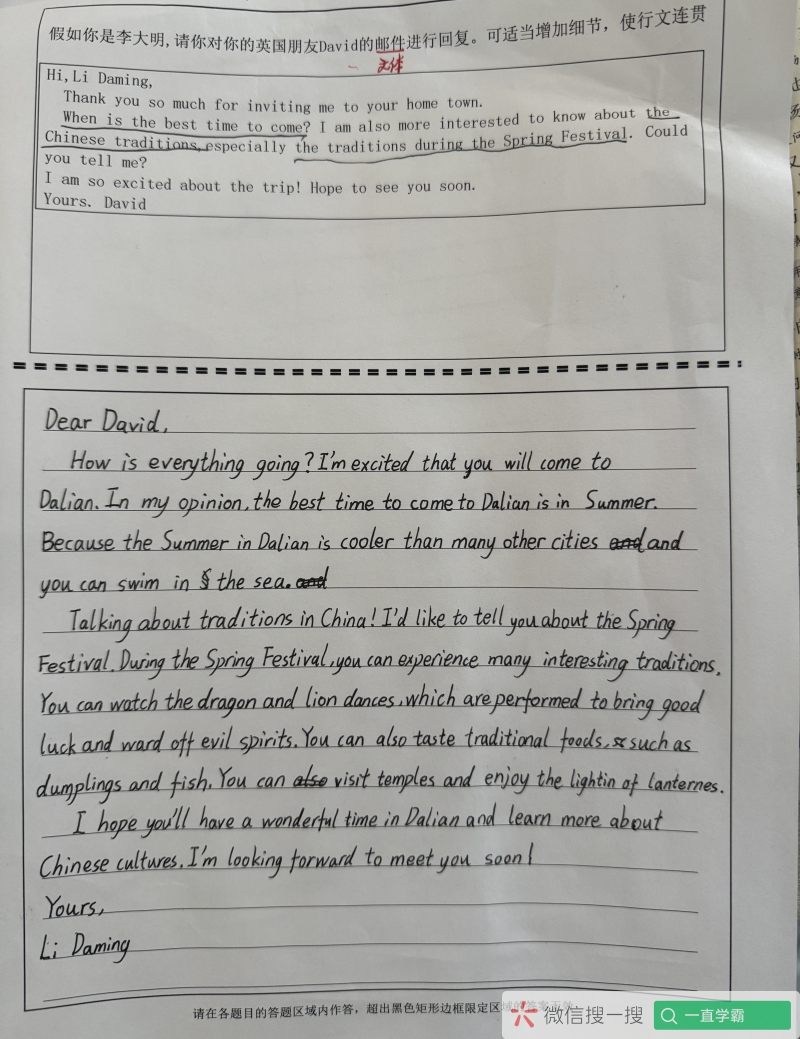 假如你是李大明,请你对你的英国朋友David的邮件进行回复。可适当增加细节，使行文连贯
文体
Hi,Li Daming,
Thank you so much for inviting me to your home town.
When is the best time to come? I am also more interested to know about the
Chinese traditions,especially the traditions during the Spring Festival. Could
you tell me?
I am so excited about the trip! Hope to see you soon.
Yours. David
Dear David,
How is everything going? I'm excited that you will come to
Dalian. In my opinion, the best time to come to Dalian is in Summer.
Because the Summer in Dalian is cooler than many other cities and and
you can swim in the sea. and
Talking about traditions in China! I'd like to tell you about the Spring
Festival. During the Spring Festival, you can experience many interesting traditions.
You can watch the dragon and lion dances, which are performed to bring good
luck and ward off evil spirits. You can also taste traditional foods, such as
dumplings and fish. You can also visit temples and enjoy the lightin of lanternes.
I hope you'll have a wonderful time in Dalian and learn more about
Chinese cultures. I'm looking forward to meet you soon!
Yours,
Li Daming
请在各题目的答题区域内作答，超出黑色矩形边框限定区域的答案无效
微信搜一搜
一直学霸